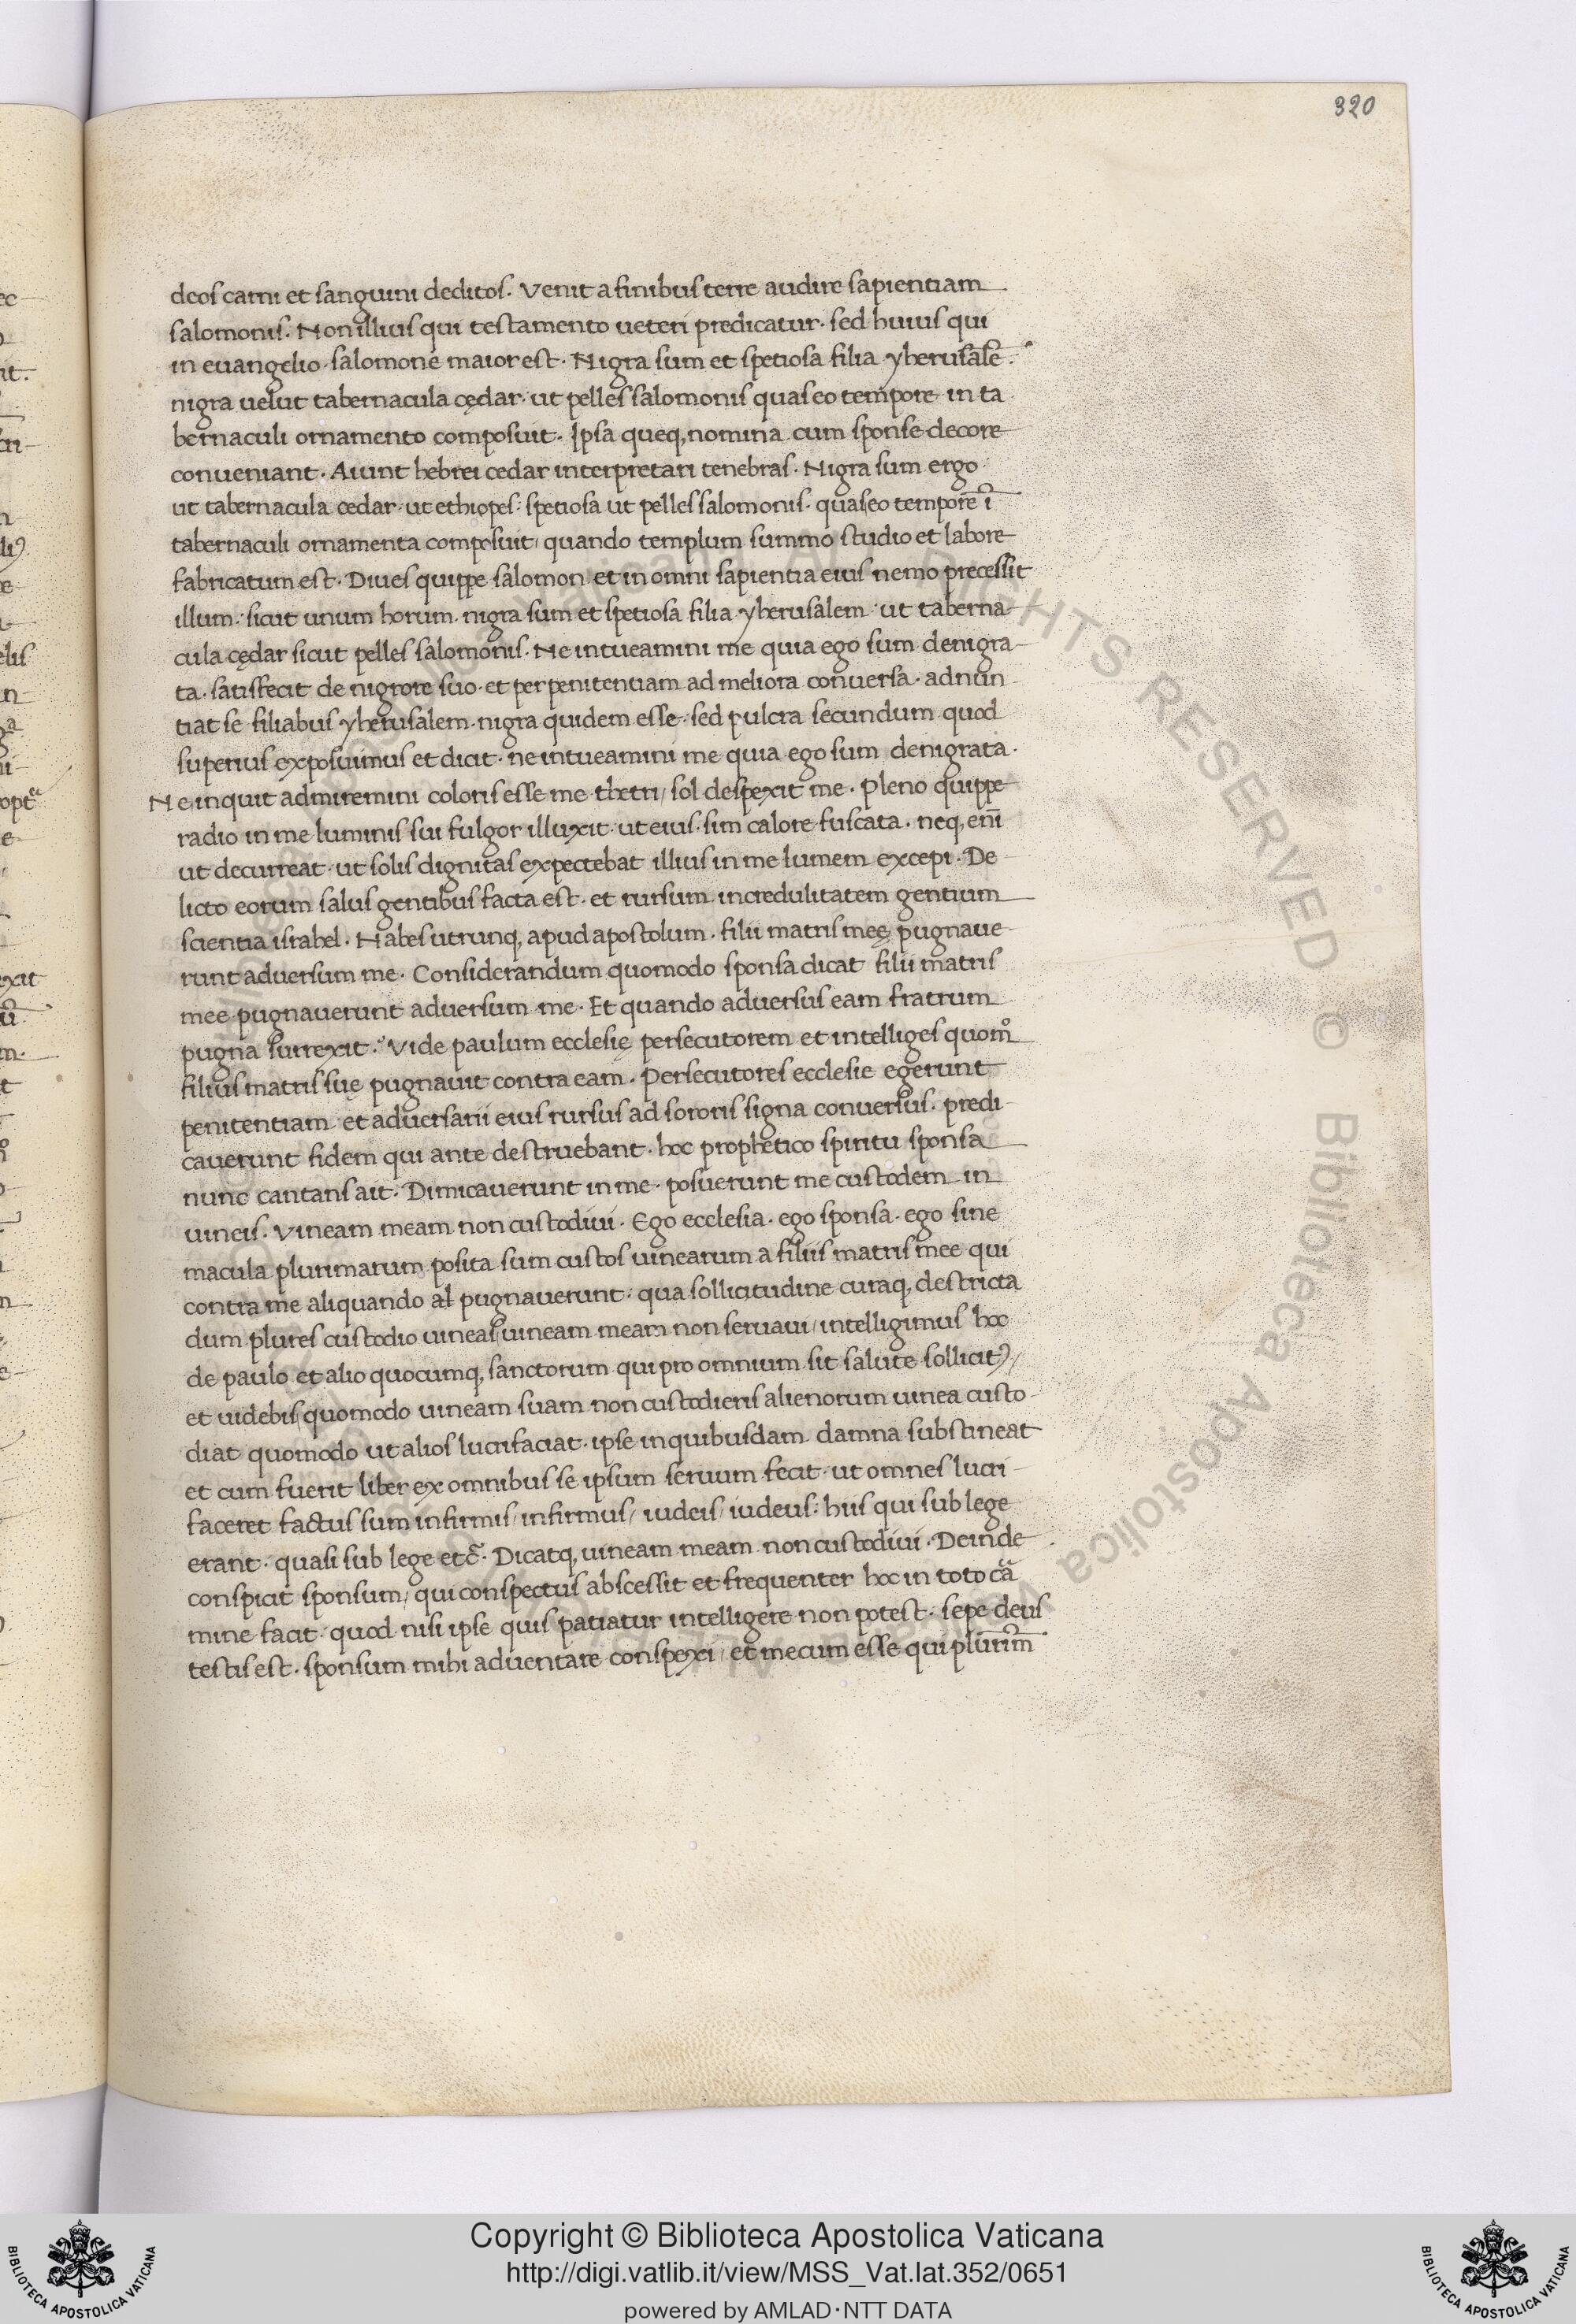 320
deos carni et sanguini deditos. Venit a finibus terre audire sapientiam
salomonis. Non illius qui testamento ueteri predicatur. sed huius qui
in euangelio salomone maior est. Nigra sum et spetiosa filia yherusalē.
nigra uelut tabernacula cędar. ut pelles salomonis quas eo tempore in ta
bernaculi ornamento composuit. Ipsa queq, nomina cum sponse decore
conueniant. Aiunt hebrei cedar interpretari tenebras. Nigra sum ergo
ut tabernacula cedar. ut ethiopes: spetiosa ut pelles salomonis. quas eo tempore ī
tabernaculi ornamenta composuit, quando templum summo studio et labore
fabricatum est. Diues quippe salomon et in omni sapientia eius nemo precessit
illum: sicut unum horum. nigra sum et spetiosa filia yherusalem ut taberna-
cula cędar sicut pelles salomonis. Ne intueamini me quia ego sum denigra-
ta. satisfecit de nigrore suo. et per penitentiam ad meliora conuersa. adnun
tiat se filiabus yherusalem. nigra quidem esse. sed pulcra secundum quod
superius exposuimus et dicit. ne intueamini me quia ego sum denigrata.
Ne inquit admiremini coloris esse me thetri, sol despexit me. Pleno quippe
radio in me luminis sui fulgor illuxit. ut eius sim calore fuscata. neq, enī
ut decurreat ut solis dignitas expectebat illius in me lumem excepi. De
licto eorum salus gentibus facta est. et rursum incredulitatem gentium
scientia israhel. Habes utrunq, apud apostolum. filii matris meę pugnaue
runt aduersum me. Considerandum quomodo sponsa dicat filii matris
mee pugnauerunt aduersum me. Et quando aduersus eam fratrum
pugna surrexit. Vide paulum ecclesię persecutorem et intelliges quomº
filius matris suę pugnauit contra eam. Persecutores ecclesie egerunt
penitentiam et aduersarii eius rursus ad sororis signa conuersus. predi
cauerunt fidem qui ante destruebant. hoc prophetico spiritu sponsa
nunc cantans ait. Dimicauerunt in me. posuerunt me custodem in
uineis. Vineam meam non custodiui. Ego ecclesia. ego sponsa. ego sine
macula plurimarum posita sum custos uinearum a filiis matris mee qui
contra me aliquando al pugnauerunt: qua sollicitudine curaq, destricta
dum plures custodio uineas uineam meam non seruaui, intelligimus hoc
de paulo et alio quocumq, sanctorum qui pro omnium sit salute sollicit⁹,
et uidebis quomodo uineam suam non custodieris alienorum uinea custo-
diat quomodo ut alios lucrifaciat. ipse in quibusdam damna substineat
et cum fuerit liber ex omnibus se ipsum seruum fecit. ut omnes lucri-
faceret factus sum infirmis, infirmus, iudeis, iudeus: hiis qui sub lege
erant. quasi sub lege etc̃. Dicatq, uineam meam non custodiui. Deinde
conspicit sponsum, qui conspectus abscessit et frequenter hoc in toto cā
mine facit. quod nisi ipse quis patiatur intelligere non potest. sepe deus
testis est. sponsum mihi aduentare conspexi, et mecum esse qui plurim̄
Copyright © Biblioteca Apostolica Vaticana
http://digi.vatlib.it/view/MSS_Vat.lat.352/0651
powered by AMLAD·NTT DATA